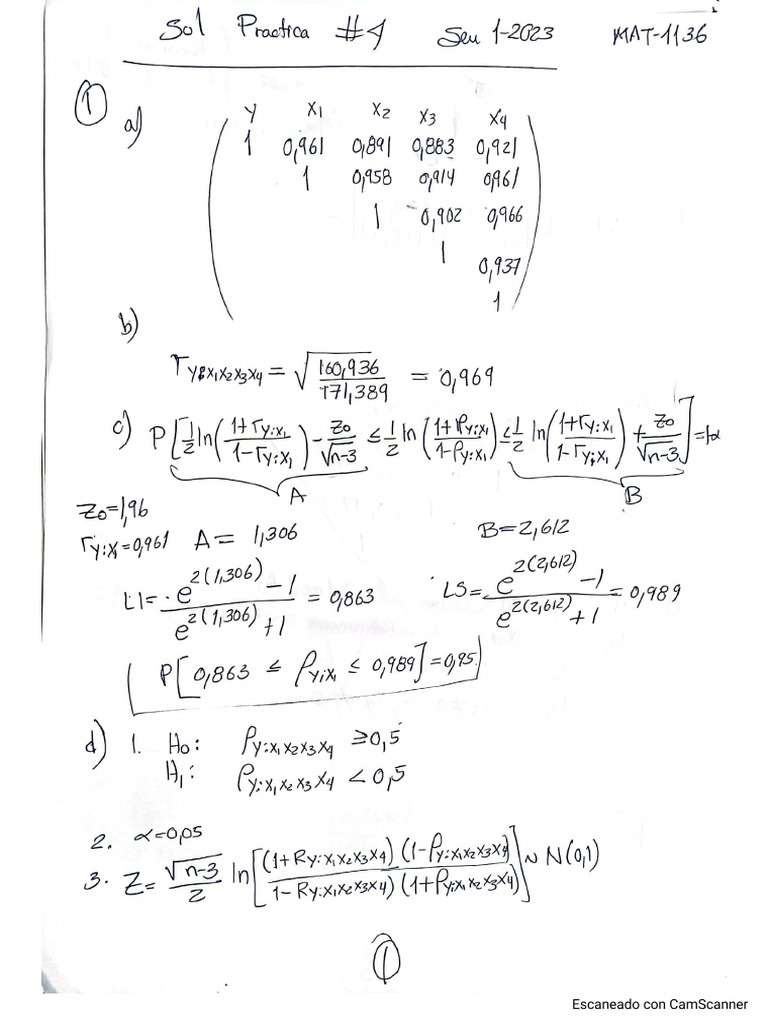 Sol Practica #4 Sem 1-2023 MAT-1136
1
a)
Y X1 X2 X3 X4
1 0,961 0,891 0,883 0,921
1 0,958 0,914 0,961
1 0,902 0,966
1 0,937
1
b)
r_{Y:X1X2X3X4} = √(160,936/171,389) = 0,969
c) P[1/2 ln((1+r_{Y:X1})/(1-r_{Y:X1})) - Z0/√(n-3) ≤ 1/2 ln((1+ρ_{Y:X1})/(1-ρ_{Y:X1})) ≤ 1/2 ln((1+r_{Y:X1})/(1-r_{Y:X1})) + Z0/√(n-3)] = 1-α
A B
Z0=1,96 B=2,612
r_{Y:X1}=0,961 A= 1,306
LI= (e^{2(1,306)} -1)/(e^{2(1,306)} +1) = 0,863 LS= (e^{2(2,612)} -1)/(e^{2(2,612)} +1) = 0,989
P[0,863 ≤ ρ_{Y:X1} ≤ 0,989]=0,95
d) 1. H0: ρ_{Y:X1X2X3X4} ≥0,5
H1: ρ_{Y:X1X2X3X4} <0,5
2. α=0,05
3. Z= √(n-3)/2 ln[((1+R_{Y:X1X2X3X4})(1-ρ_{Y:X1X2X3X4}))/((1-R_{Y:X1X2X3X4})(1+ρ_{Y:X1X2X3X4}))] ~ N(0,1)
1
Escaneado con CamScanner